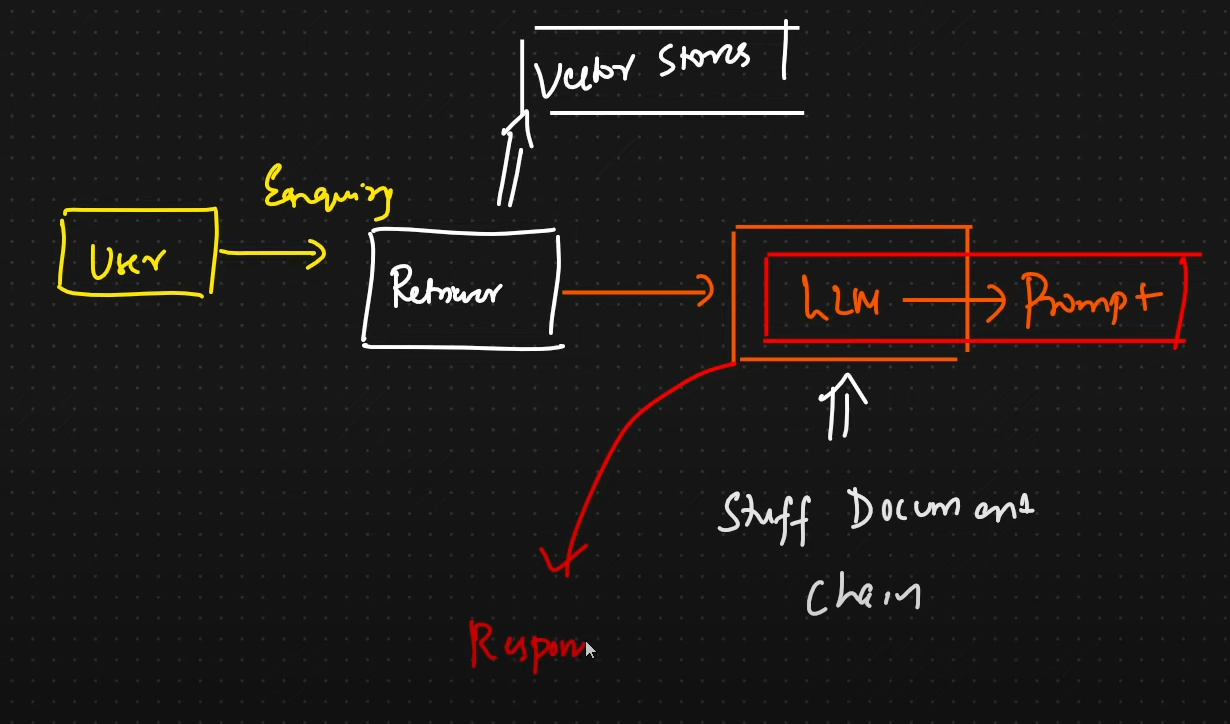 Vector Stores
Enquiry
User
Retriever
LLM
Prompt
Stuff Document
Chain
Respon